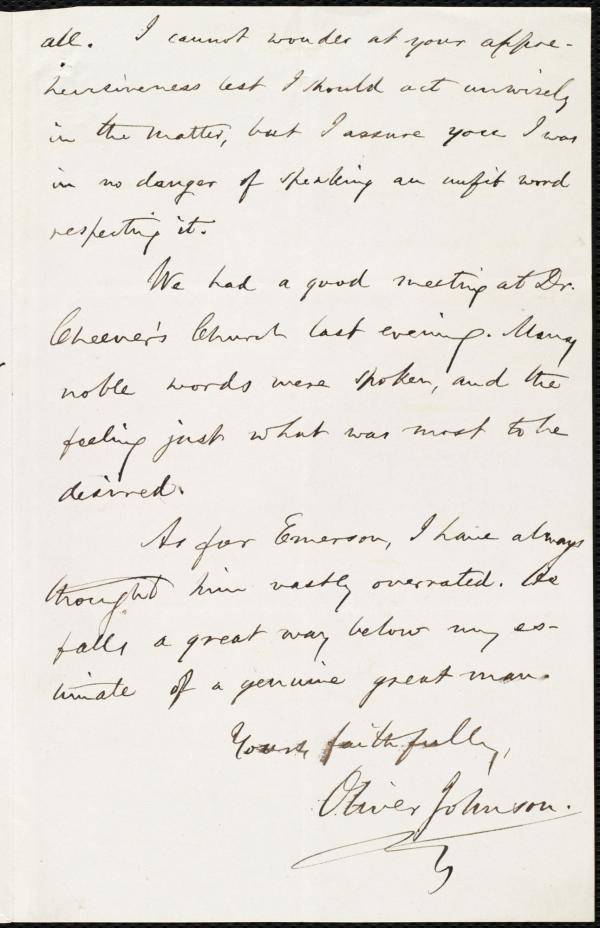 all. I cannot wonder at your appre-
hensiveness lest I should act unwisely
in the matter, but I assure you I was
in no danger of speaking an unfit word
respecting it.
We had a good meeting at Dr.
Cheever's Church last evening. Many
noble words were spoken, and the
feeling just what was most to be
desired.
As for Emerson, I have always
thought him vastly overrated. He
falls a great way below my es-
timate of a genuine great man.
Yours faithfully,
Oliver Johnson.